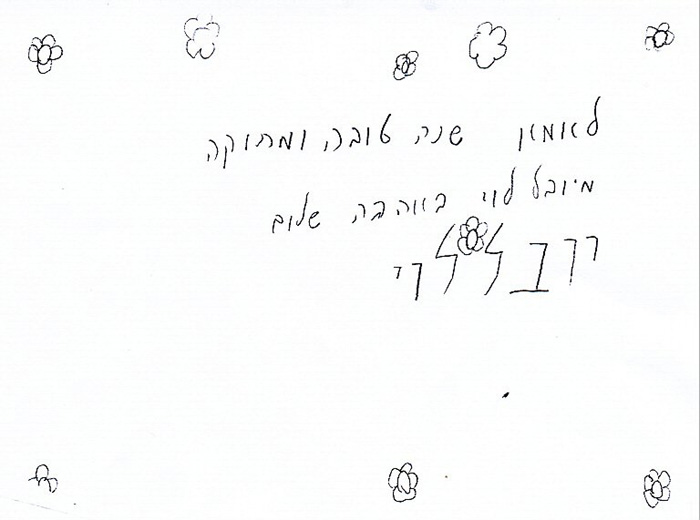 לאמאן שנה טובה ומתוקה
מיובל לוי באהבה שלום
יובל לוי